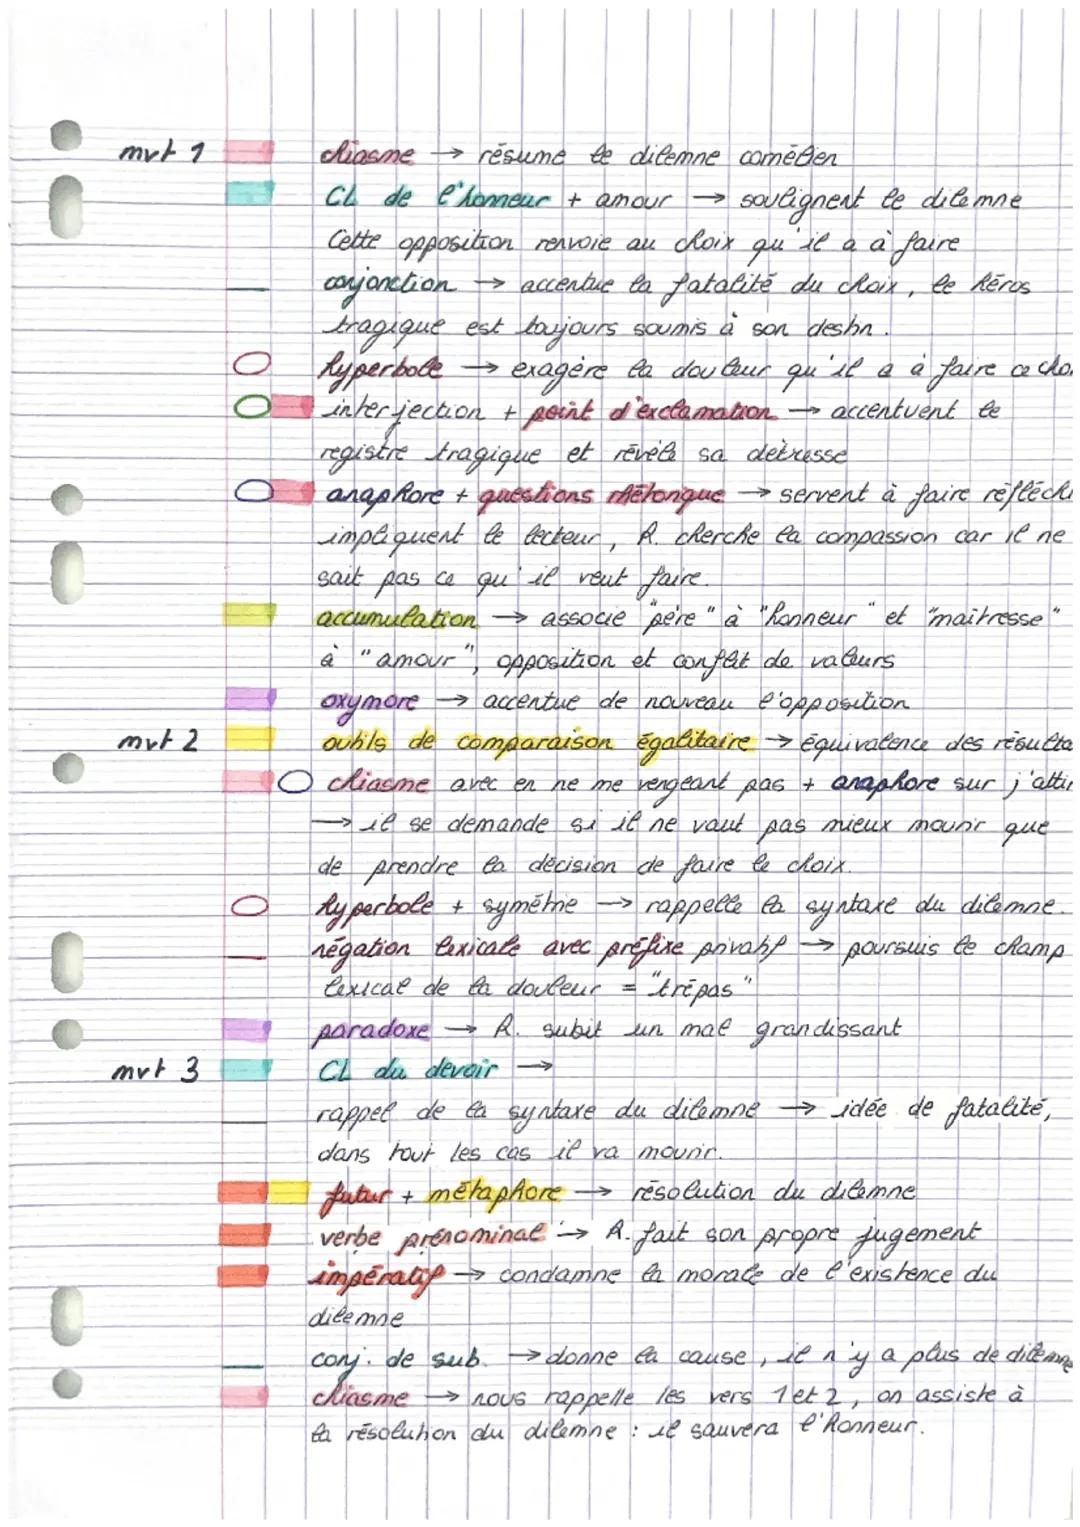 mvt 1 chiasme → résume le dilemne cornélien
CL de l'honneur + amour → soulignent le dilemne
Cette opposition renvoie au choix qu'il a à faire
conjonction → accentue la fatalité du choix, le héros
tragique est toujours soumis à son destin.
hyperbole → exagère la douleur qu'il a à faire ce cho
interjection + point d'exclamation → accentuent le
registre tragique et révèle sa détresse
anaphore + questions rhétorique → servent à faire réfléchi
impliquent le lecteur, R. cherche la compassion car il ne
sait pas ce qu'il veut faire.
accumulation → associe "père" à "honneur" et "maitresse"
à "amour", opposition et conflit de valeurs
oxymore → accentue de nouveau l'opposition
mvt 2 outils de comparaison égalitaire → équivalence des résulta
chiasme avec en ne me vengeant pas + anaphore sur j'attir
→ il se demande si il ne vaut pas mieux mourir que
de prendre la décision de faire le choix.
hyperbole + symétrie → rappelle la syntaxe du dilemne.
négation lexicale avec préfixe privatif → poursuis le champ
lexical de la douleur = "trépas"
paradoxe → R. subit un mal grandissant
mvt 3 CL du devoir →
rappel de la syntaxe du dilemne → idée de fatalité,
dans tout les cas il va mourir.
futur + métaphore → résolution du dilemne
verbe prénominal → R. fait son propre jugement
impératif → condamne la morale de l'existence du
dilemne
conj. de sub. → donne la cause, il n'y a plus de dilemne
chiasme → nous rappelle les vers 1 et 2, on assiste à
la résolution du dilemne : il sauvera l'honneur.